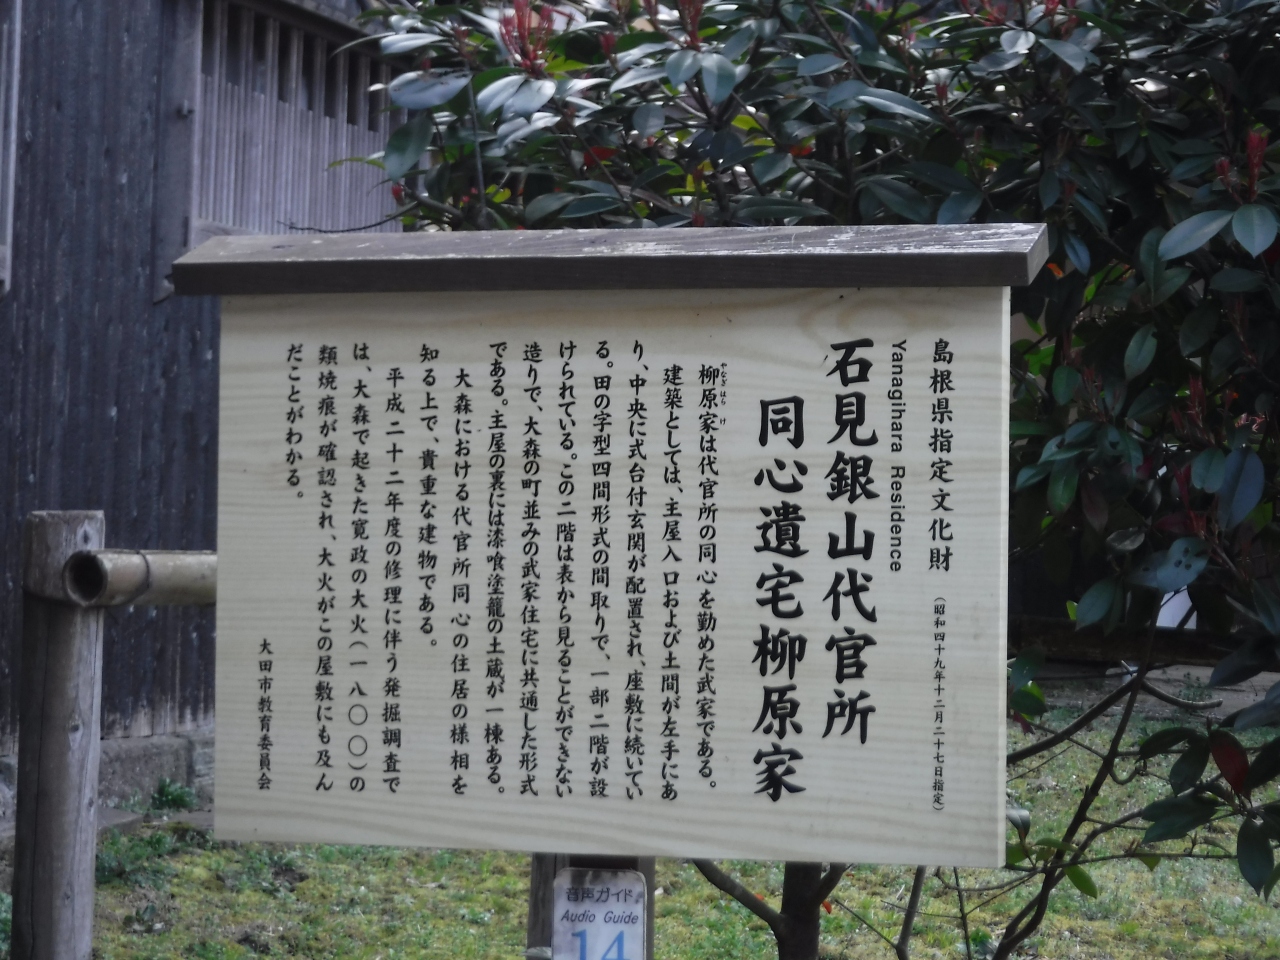 島根県指定文化財(昭和四十九年十二月二十七日指定)
Yanagihara Residence
石見銀山代官所
同心遺宅柳原家
柳原家は代官所の同心を勤めた武家である。
やなぎはらけ
建築としては、主屋入口および土間が左手にあ
り、中央に式台付玄関が配置され、座敷に続いてい
る。田の字型四間形式の間取りで、一部二階が設
けられている。この二階は表から見ることができない
造りで、大森の町並みの武家住宅に共通した形式
である。主屋の裏には漆喰塗籠の土蔵が一棟ある。
大森における代官所同心の住居の様相を
知る上で、貴重な建物である。
平成二十二年度の修理に伴う発掘調査で
は、大森で起きた寛政の大火(一八〇〇)の
類焼痕が確認され、大火がこの屋敷にも及ん
だことがわかる。
大田市教育委員会
音声ガイド
Audio Guide
14